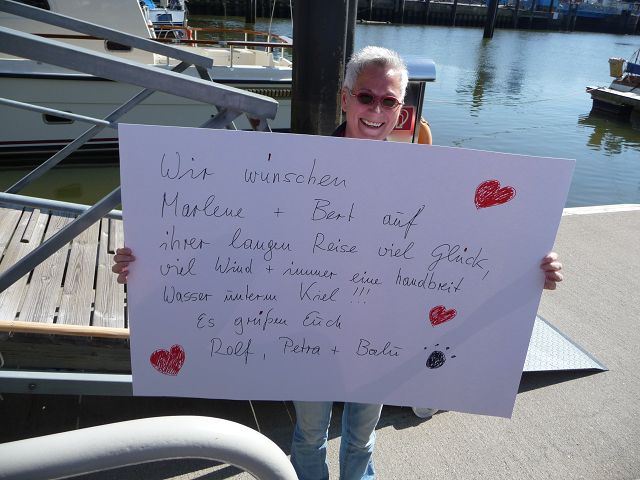 Wir wünschen
Marlene + Bert auf
ihrer langen Reise viel Glück,
viel Wind + immer eine handbreit
Wasser unterm Kiel !!!
Es grüßen Euch
Rolf, Petra + Balu